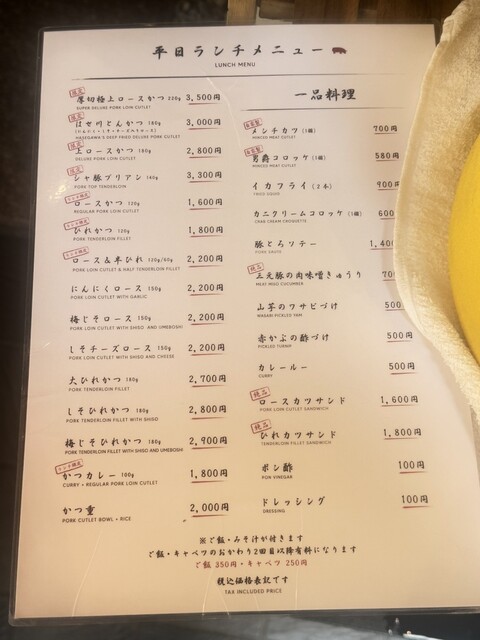 平日ランチメニュー
LUNCH MENU
限定
厚切極上ロースかつ 220g 3,500円
SUPER DELUXE PORK LOIN CUTLET
限定
はせ川とんかつ 180g 3,000円
HASEGAWA'S DEEP FRIED DELUXE PORK CUTLET
限定
上ロースかつ 180g 2,800円
DELUXE PORK LOIN CUTLET
限定
シャ豚ブリアン 160g 3,300円
PORK TOP TENDERLOIN
ランチ限定
ロースかつ 120g 1,600円
REGULAR PORK LOIN CUTLET
ランチ限定
ひれかつ 120g 1,800円
PORK TENDERLOIN FILLET
ランチ限定
ロース&半ひれ 120g/60g 2,200円
PORK LOIN CUTLET & HALF TENDERLOIN FILLET
にんにくロース 150g 2,200円
PORK LOIN CUTLET WITH GARLIC
梅じそロース 150g 2,200円
PORK LOIN CUTLET WITH SHISO AND UMEBOSHI
しそチーズロース 150g 2,200円
PORK LOIN CUTLET WITH SHISO AND CHEESE
大ひれかつ 180g 2,700円
PORK TENDERLOIN FILLET
しそひれかつ 180g 2,800円
PORK TENDERLOIN FILLET WITH SHISO
梅じそひれかつ 180g 2,900円
PORK TENDERLOIN FILLET WITH SHISO AND UMEBOSHI
ランチ限定
かつカレー 100g 1,800円
CURRY + REGULAR PORK LOIN CUTLET
かつ重 2,000円
PORK CUTLET BOWL + RICE
一品料理
自家製
メンチカツ (1個) 700円
MINCED MEAT CUTLET
自家製
男爵コロッケ (1個) 580円
MINCED MEAT CUTLET
イカフライ (2本) 900円
FRIED SQUID
カニクリームコロッケ (1個) 600
CRAB CREAM CROQUETTE
豚とろソテー 1,40
PORK SAUTE
絶品
三元豚の肉味噌きゅうり 70
MEAT MISO CUCUMBER
山芋のワサビづけ 500
WASABI PICKLED YAM
赤かぶの酢づけ 500円
PICKLED TURNIP
カレールー 500円
CURRY
絶品
ロースカツサンド 1,600円
PORK LOIN CUTLET SANDWICH
絶品
ひれカツサンド 1,800円
TENDERLOIN FILLET SANDWICH
ポン酢 100円
PON VINEGAR
ドレッシング 100円
DRESSING
※ご飯・みそ汁が付きます
ご飯・キャベツのおかわり2回目以降有料になります
ご飯 350円・キャベツ 250円
税込価格表記です
TAX INCLUDED PRICE